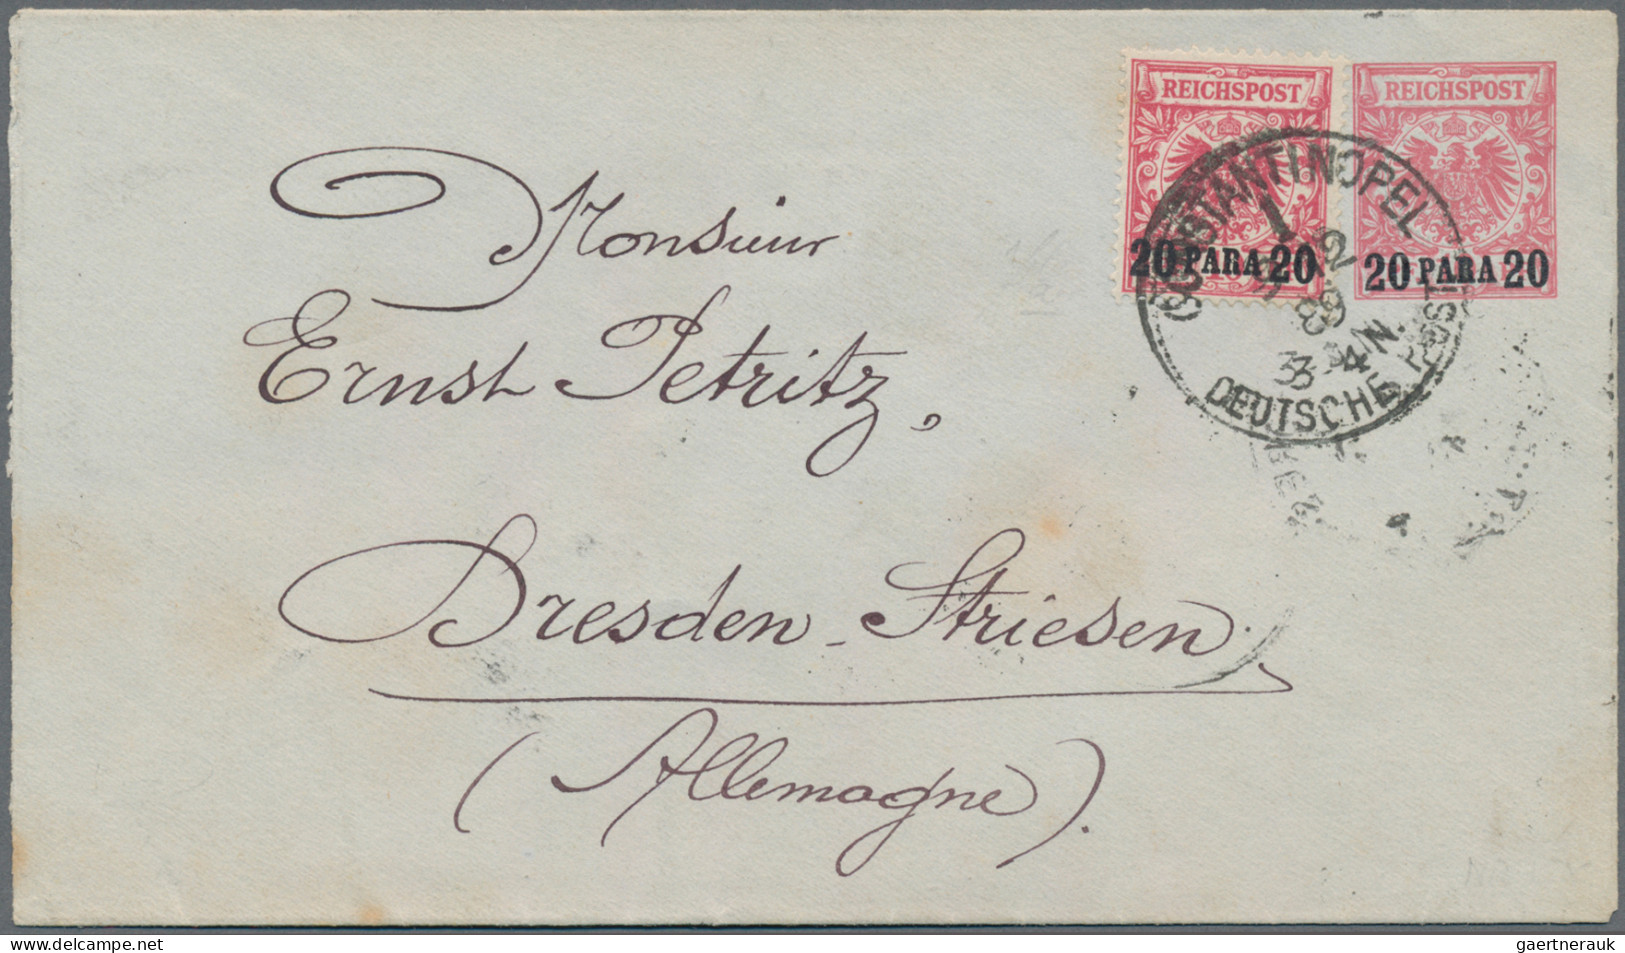 REICHSPOST
20 PARA 20
REICHSPOST
20 PARA 20
CONSTANTINOPEL
1
DEUTSCHE POST
Monsieur
Ernst Petritz,
Dresden-Striesen.
(Allemagne).
www.delcampe.net
gaertnerauk